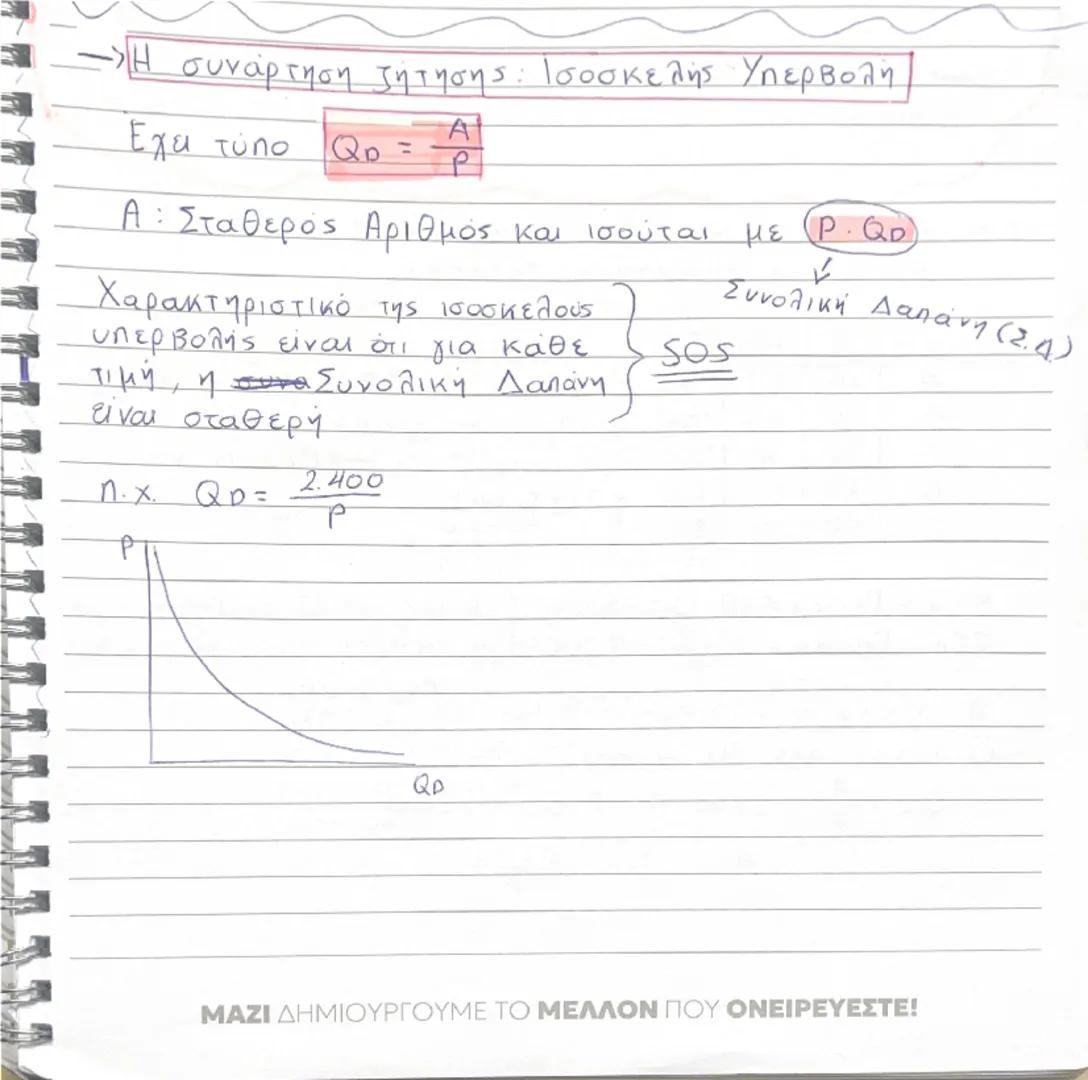 → Η συνάρτηση ζήτησης: Ισοσκελής Υπερβολή
Έχει τύπο QD = A/P
Α: Σταθερός Αριθμός και ισούται με P · QD
Συνολική Δαπάνη (Σ.Δ)
Χαρακτηριστικό της ισοσκελούς
υπερβολής είναι ότι για κάθε
τιμή, η Συνολική Δαπάνη
είναι σταθερή
SOS
π.χ. QD = 2.400/P
P
QD
ΜΑΖΙ ΔΗΜΙΟΥΡΓΟΥΜΕ ΤΟ ΜΕΛΛΟΝ ΠΟΥ ΟΝΕΙΡΕΥΕΣΤΕ!